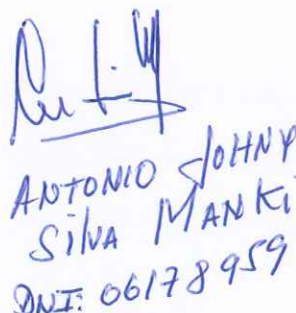 ANTONIO JOHNY
SilVA MANKi
DNI: 06178959